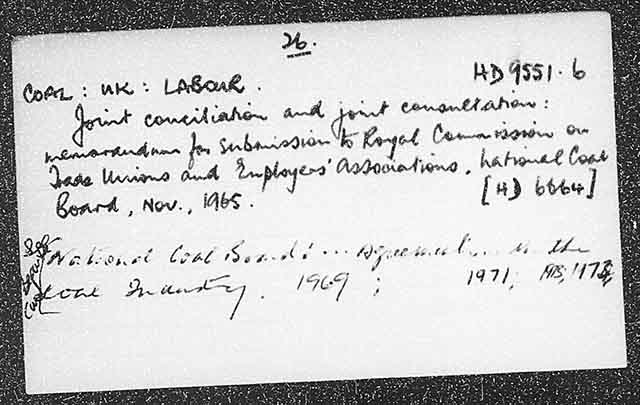 26.
COAL : UK : LABOUR.
HD 9551.6
Joint conciliation and joint consultation :
memorandum for submission to Royal Commission on
Trade Unions and Employers' Associations. National Coal
Board, Nov., 1965.
[HD 6664]
National Coal Board : ... Agreements ... in the
Coal Industry. 1969 ; 1971 ;